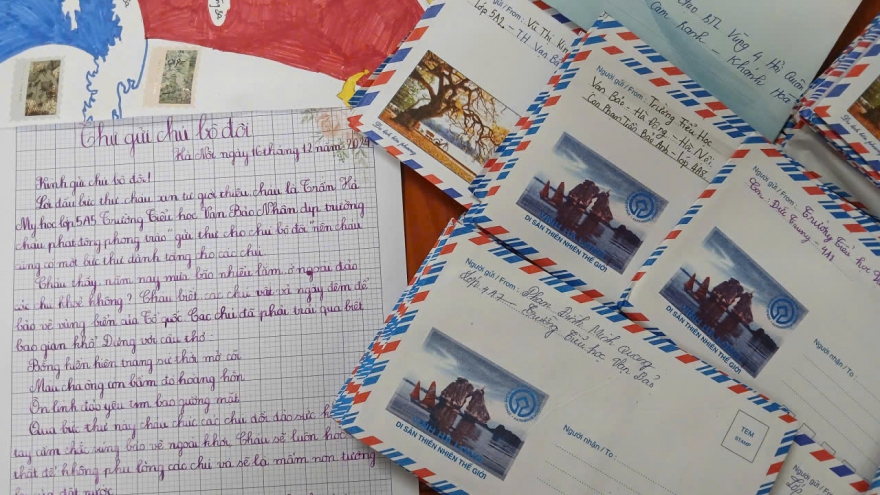 Thư gửi chú bộ đội
Hà Nội ngày 16 tháng 12 năm 2024
Kính gửi chú bộ đội!
Lời đầu bức thư cháu xin tự giới thiệu cháu là Trần Hà
My học lớp 5A5 Trường Tiểu học Văn Bảo. Nhân dịp trường
cháu phát động phong trào "gửi thư cho chú bộ đội" nên cháu
cũng có một bức thư dành tặng cho các chú.
Cháu thấy năm nay mưa bão nhiều lắm, ở ngoài đảo
các chú khoẻ không? Cháu biết các chú vất vả ngày đêm để
bảo vệ vùng biển của Tổ quốc. Các chú đã phải trải qua biết
bao gian khổ. Đúng với câu thơ:
Bỗng hiển hiện trắng sư thời mở cõi
Máu cha ông còn bầm đỏ hoàng hôn
Ôn linh đảo yêu em bao gương mặt
Qua bức thư này cháu chúc các chú dồi dào sức
tay cầm chắc súng bảo vệ ngoài khơi. Cháu sẽ luôn học
thật để không phụ lòng các chú và sẽ là mầm non tương
lai của đất nước
Người gửi / From: Vũ Thị Kim
Lớp 5A2 - TH Văn Bảo
Người gửi / From: Trường Tiểu Học
Văn Bảo - Hà Đông - Hà Nội
Con Phan Trần Bảo Anh - Lớp 4A8
DI SẢN THIÊN NHIÊN THẾ GIỚI
đảo BTL Vùng 4, Hải Quân
Cam Ranh - Khánh Hoà
Người gửi / From: Trường Tiểu học V
Con: Đức Trung - 4A1
DI SẢN THIÊN NHIÊN THẾ GIỚI
Người nhận / To:
Người gửi / From: Phan Đình Minh Quang
Lớp 4A7 Trường Tiểu học Văn Bảo
DI SẢN THIÊN NHIÊN THẾ GIỚI
Người nhận / To:
TEM
STAMP
Người gửi / From